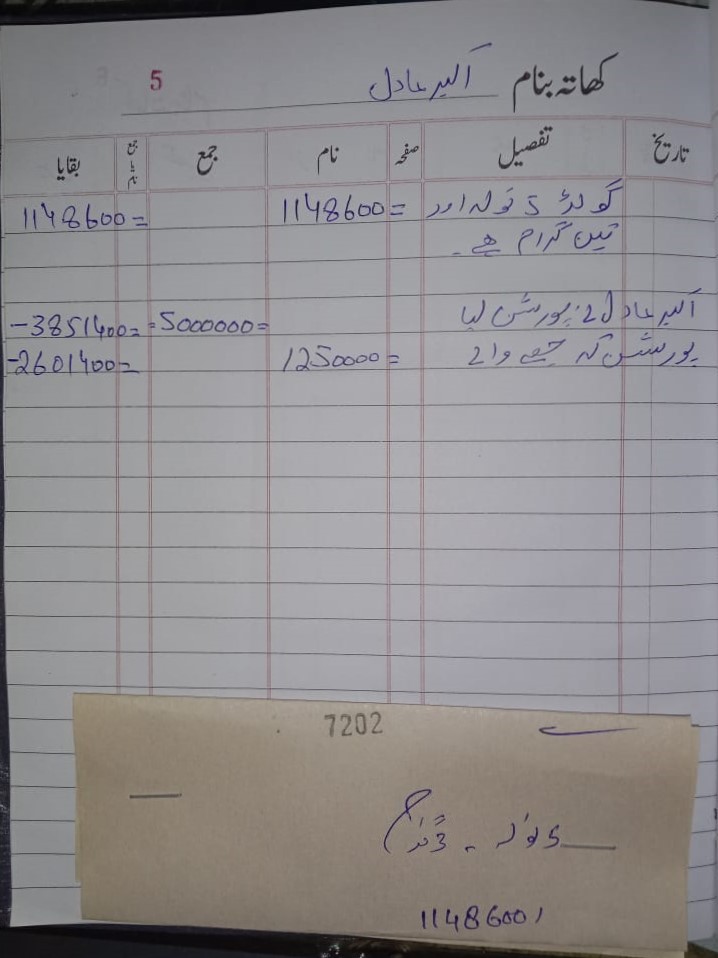 5
کھاتہ بنام اکبر عادل
تاریخ تفصیل صفحہ نام جمع جمع یا نام بقایا
گولڈ 5 تولہ اور 1148600= 1148600=
تین گرام ہے۔
اکبر عادل 2 پورشن لیا 5000000= -3851400=
پورشن کہ جمع والے 1250000= -2601400=
7202
5 تولہ - 3 گرام
1148600/